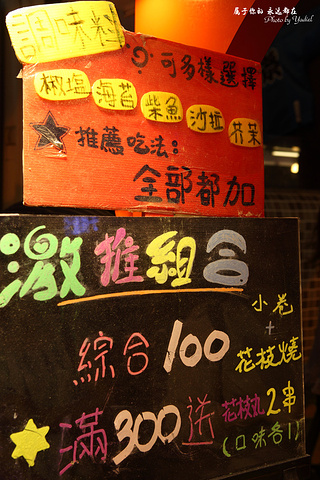 属于你的 永远都在
Photo by Yukiel
調味料
可多樣選擇
椒塩 海苔 柴魚 沙拉 芥茉
推薦吃法：
全部都加
激推組合
小卷
+
綜合100 花枝燒
滿300送 花枝丸2串
(口味各1)